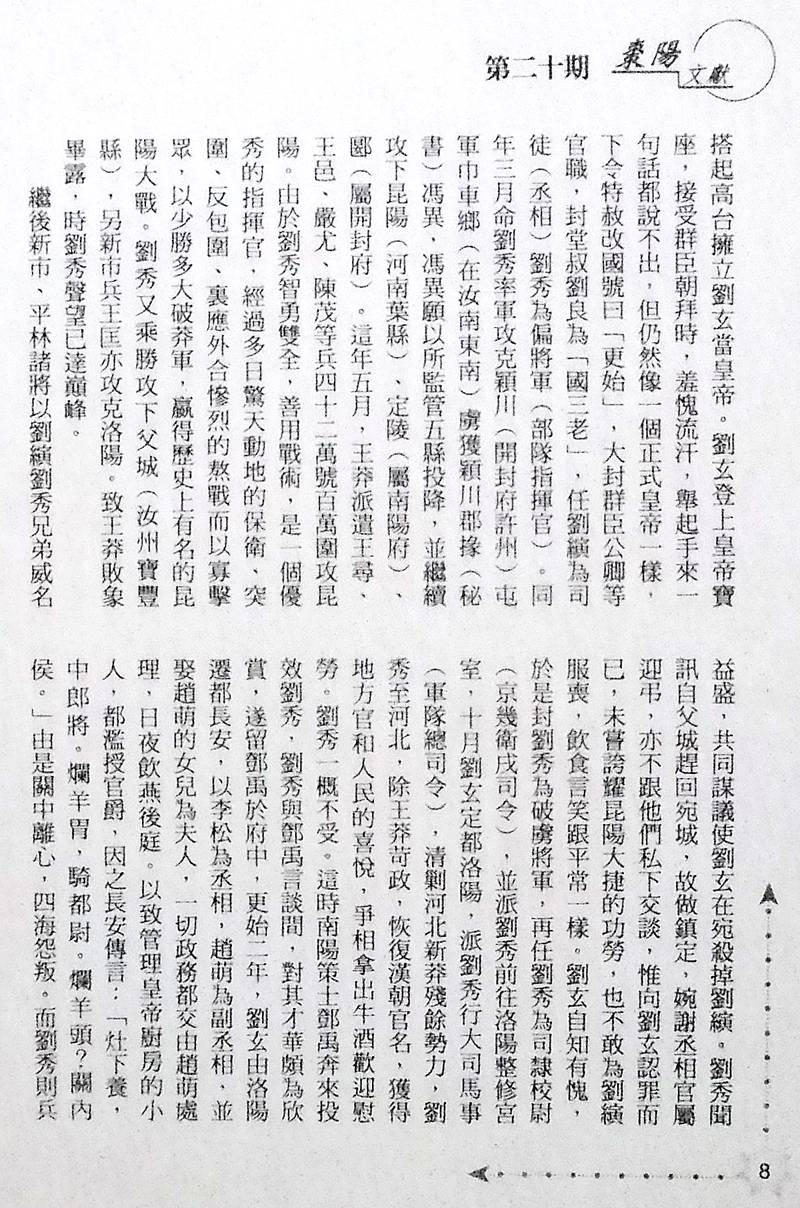 棗陽
文獻
第二十期
搭起高台擁立劉玄當皇帝。劉玄登上皇帝寶
座，接受群臣朝拜時，羞愧流汗，舉起手來一
句話都說不出，但仍然像一個正式皇帝一樣，
下令特赦改國號曰「更始」，大封群臣公卿等
官職，封堂叔劉良為「國三老」，任劉縯為司
徒（丞相）劉秀為偏將軍（部隊指揮官）。同
年三月命劉秀率軍攻克穎川（開封府許州）屯
軍巾車鄉（在汝南東南）虜獲穎川郡掾（秘
書）馮異，馮異願以所監管五縣投降，並繼續
攻下昆陽（河南葉縣）、定陵（屬南陽府）、
郾（屬開封府）。這年五月，王莽派遣王尋、
王邑、嚴尤、陳茂等兵四十二萬號百萬圍攻昆
陽。由於劉秀智勇雙全，善用戰術，是一個優
秀的指揮官，經過多日驚天動地的保衛、突
圍、反包圍、裏應外合慘烈的熬戰而以寡擊
眾，以少勝多大破莽軍，贏得歷史上有名的昆
陽大戰。劉秀又乘勝攻下父城（汝州寶豐
縣），另新市兵王匡亦攻克洛陽。致王莽敗象
畢露，時劉秀聲望已達巔峰。
繼後新市、平林諸將以劉縯劉秀兄弟威名
益盛，共同謀議使劉玄在宛殺掉劉縯。劉秀聞
訊自父城趕回宛城，故做鎮定，婉謝丞相官屬
迎弔，亦不跟他們私下交談，惟向劉玄認罪而
已，未嘗誇耀昆陽大捷的功勞，也不敢為劉縯
服喪，飲食言笑跟平常一樣。劉玄自知有愧，
於是封劉秀為破虜將軍，再任劉秀為司隸校尉
（京幾衛戍司令），並派劉秀前往洛陽整修宮
室，十月劉玄定都洛陽，派劉秀行大司馬事
（軍隊總司令），清剿河北新莽殘餘勢力，劉
秀至河北，除王莽苛政，恢復漢朝官名，獲得
地方官和人民的喜悅，爭相拿出牛酒歡迎慰
勞。劉秀一概不受。這時南陽策士鄧禹奔來投
效劉秀，劉秀與鄧禹言談間，對其才華頗為欣
賞，遂留鄧禹於府中，更始二年，劉玄由洛陽
遷都長安，以李松為丞相，趙萌為副丞相，並
娶趙萌的女兒為夫人，一切政務都交由趙萌處
理，日夜飲燕後庭。以致管理皇帝廚房的小
人，都濫授官爵，因之長安傳言：「灶下養，
中郎將。爛羊胃，騎都尉。爛羊頭？關內
侯。」由是關中離心，四海怨叛。而劉秀則兵
8